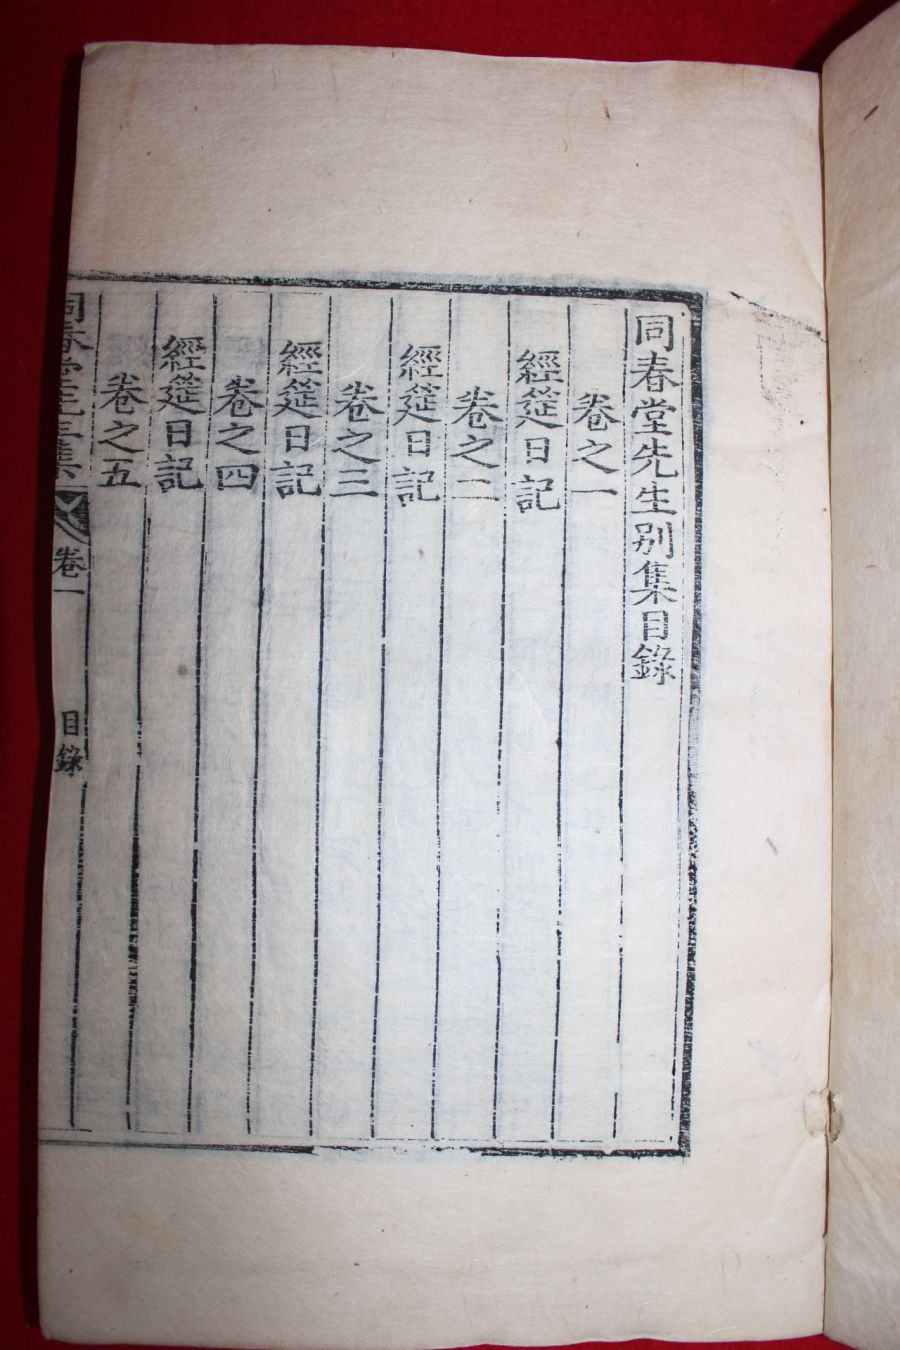 同春堂先生别集目錄
卷之一
經筵日記
卷之二
經筵日記
卷之三
經筵日記
卷之四
經筵日記
卷之五
同春堂先生集
卷一
目錄